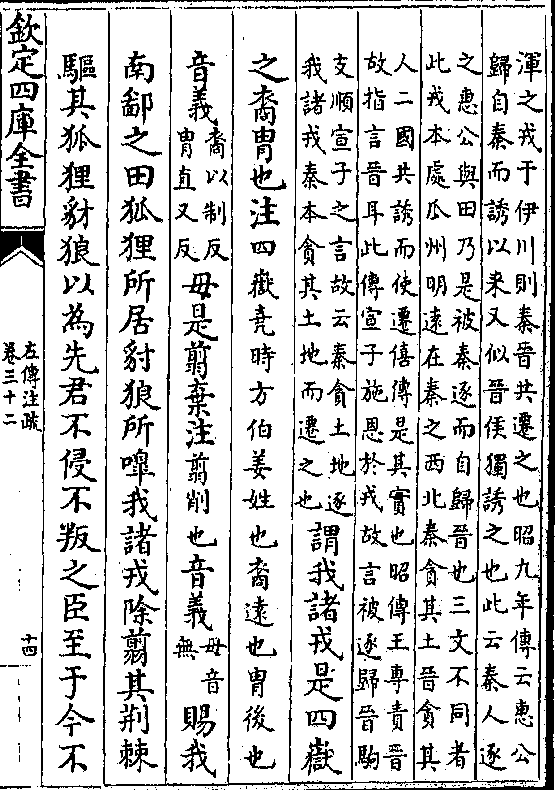 渾之戎于伊川則秦晉共遷之也昭九年傳云惠公
歸自秦而誘以來又似晉侯獨誘之也此云秦人逐
之惠公與田乃是被秦逐而自歸晉也三文不同者
此戎本處瓜州明遠在秦之西北秦貪其土晉貪其
人二國共誘而使遷僖傳是其實也昭傳王專責晉
故指言晉耳此傳宣子施恩於戎故言被逐歸晉駒
支順宣子之言故云秦貪土地逐
我諸戎秦本貪其土地而遷之也
謂我諸戎是四嶽
之裔胄也注四嶽堯時方伯姜姓也裔遠也胄後也
音義
裔以制反
胄直又反
毋是翦棄注翦削也音義
毋音
無
賜我
南鄙之田狐狸所居豺狼所嘷我諸戎除翦其荆棘
驅其狐狸豺狼以為先君不侵不叛之臣至于今不
欽定四庫全書
左傳注疏
卷三十二
十四